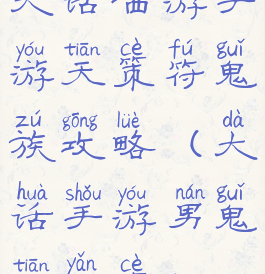 yóu tiān cè fú guǐ
游天策符鬼
zú gōng lüè dà
族攻略（大
huà shǒu yóu nán guǐ
话手游男鬼
tiān yǎn cè